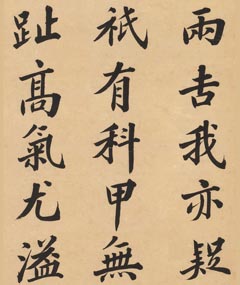 兩告我亦疑
祇有科甲無
趾髙氣尤溢